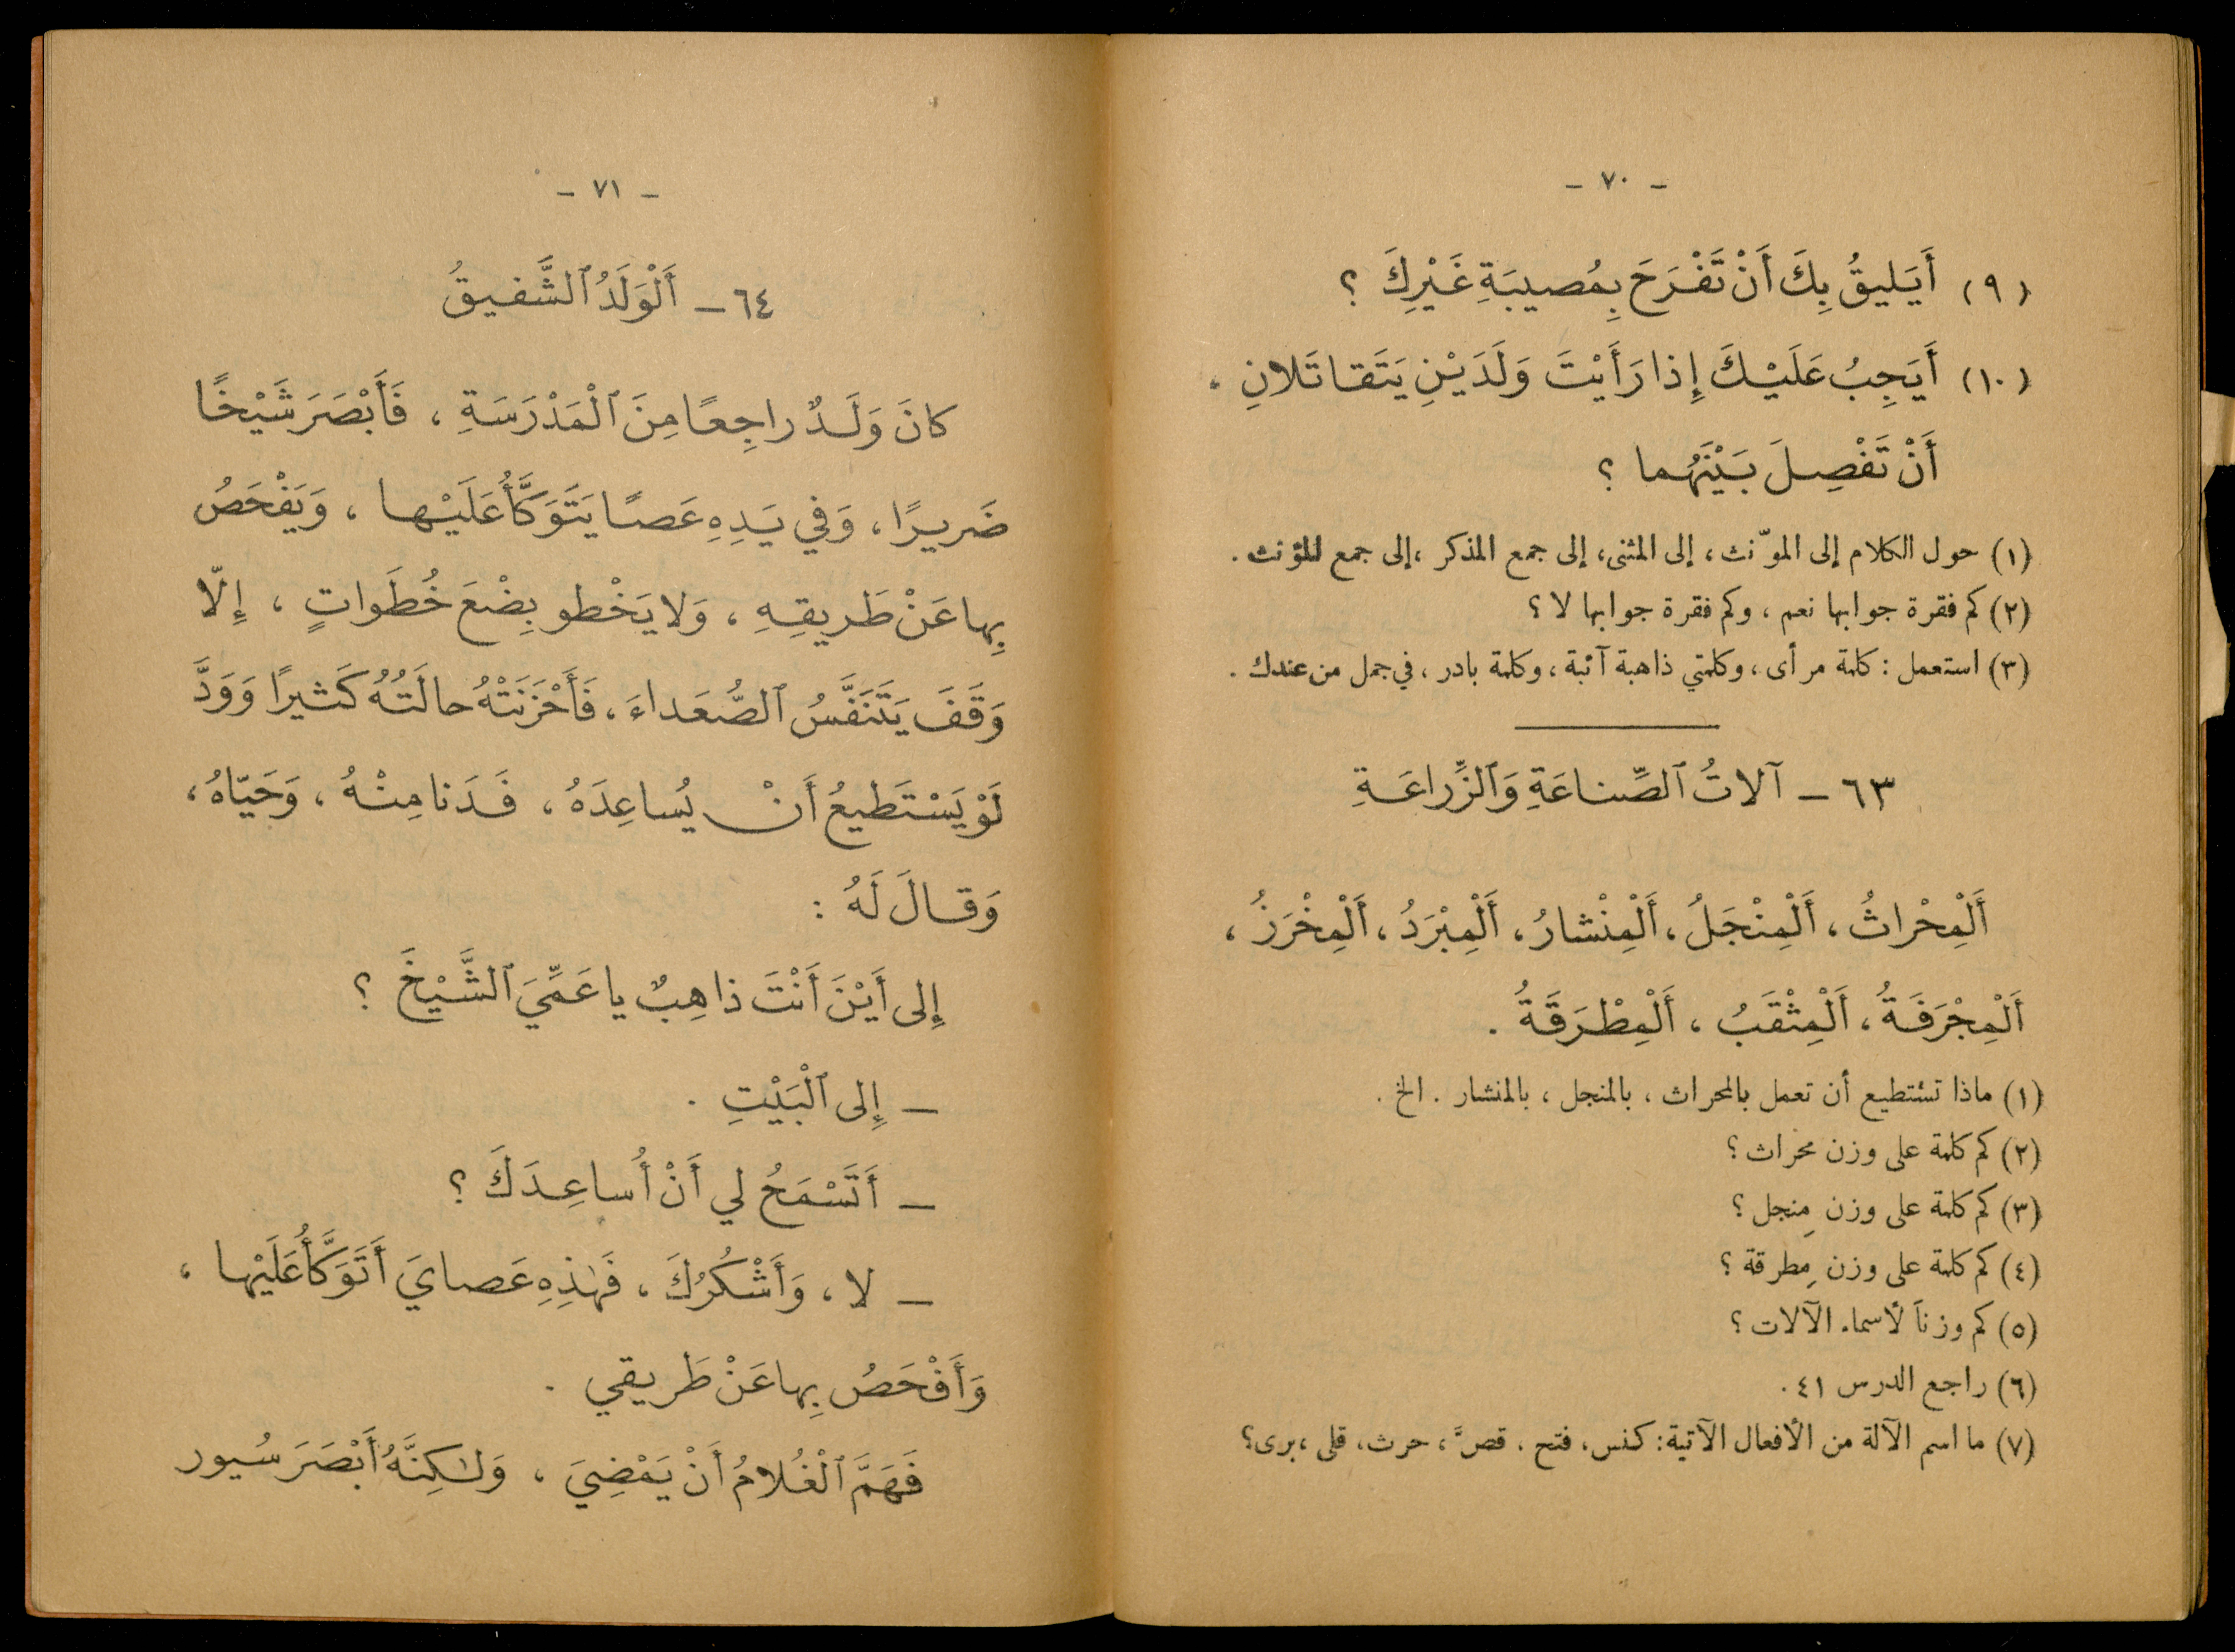 - ٧٠ -
(٩) أَيَليقُ بِكَ أَنْ تَفْرَحَ بِمُصيبَةِ غَيْرِكَ ؟
(١٠) أَيَجِبُ عَلَيْكَ إِذا رَأَيْتَ وَلَدَيْنِ يَتَقاتَلانِ .
أَنْ تَفْصِلَ بَيْنَهُما ؟
(١) حول الكلام إلى الموّنث ، إلى المثنى ، إلى جمع المذكر ، إلى جمع المؤنث .
(٢) كم فقرة جوابها نعم ، وكم فقرة جوابها لا ؟
(٣) استعمل : كلمة مرأى ، وكلمتي ذاهبة آئبة ، وكلمة بادر ، في جمل من عندك .
٦٣ – آلاتُ ٱلصِّناعَةِ وَٱلزِّراعَةِ
أَلْمِحْراثُ ، أَلْمِنْجَلُ ، أَلْمِنْشارُ ، أَلْمِبْرَدُ ، أَلْمِخْرَزُ ،
أَلْمِجْرَفَةُ ، أَلْمِثْقَبُ ، أَلْمِطْرَقَةُ .
(١) ماذا تستطيع أن تعمل بالمحراث ، بالمنجل ، بالمنشار . الخ .
(٢) كم كلمة على وزن محراث ؟
(٣) كم كلمة على وزن مِنجل ؟
(٤) كم كلمة على وزن مِطرقة ؟
(٥) كم وزناً لأسماء الآلات ؟
(٦) راجع الدرس ٤١ .
(٧) ما اسم الآلة من الأفعال الآتية : كنس ، فتح ، قصَّ ، حرث ، قلى ، برى ؟
- ٧١ -
٦٤ – أَلْوَلَدُ ٱلشَّفيقُ
كانَ وَلَدٌ راجِعًا مِنَ ٱلْمَدْرَسَةِ ، فَأَبْصَرَ شَيْخًا
ضَريرًا ، وَفي يَدِهِ عَصًا يَتَوَكَّأُ عَلَيْها ، وَيَفْحَصُ
بِها عَنْ طَريقِهِ ، وَلا يَخْطو بِضْعَ خُطَواتٍ ، إِلّا
وَقَفَ يَتَنَفَّسُ ٱلصُّعَداءَ ، فَأَحْزَنَتْهُ حالَتُهُ كَثيرًا وَوَدَّ
لَوْ يَسْتَطيعُ أَنْ يُساعِدَهُ ، فَدَنا مِنْهُ ، وَحَيّاهُ ،
وَقالَ لَهُ :
إِلى أَيْنَ أَنْتَ ذاهِبٌ يا عَمِّيَ ٱلشَّيْخَ ؟
– إِلى ٱلْبَيْتِ .
– أَتَسْمَحُ لي أَنْ أُساعِدَكَ ؟
– لا ، وَأَشْكُرُكَ ، فَهٰذِهِ عَصايَ أَتَوَكَّأُ عَلَيْها ،
وَأَفْحَصُ بِها عَنْ طَريقي .
فَهَمَّ ٱلْغُلامُ أَنْ يَمْضِيَ ، وَلٰكِنَّهُ أَبْصَرَ سُيور